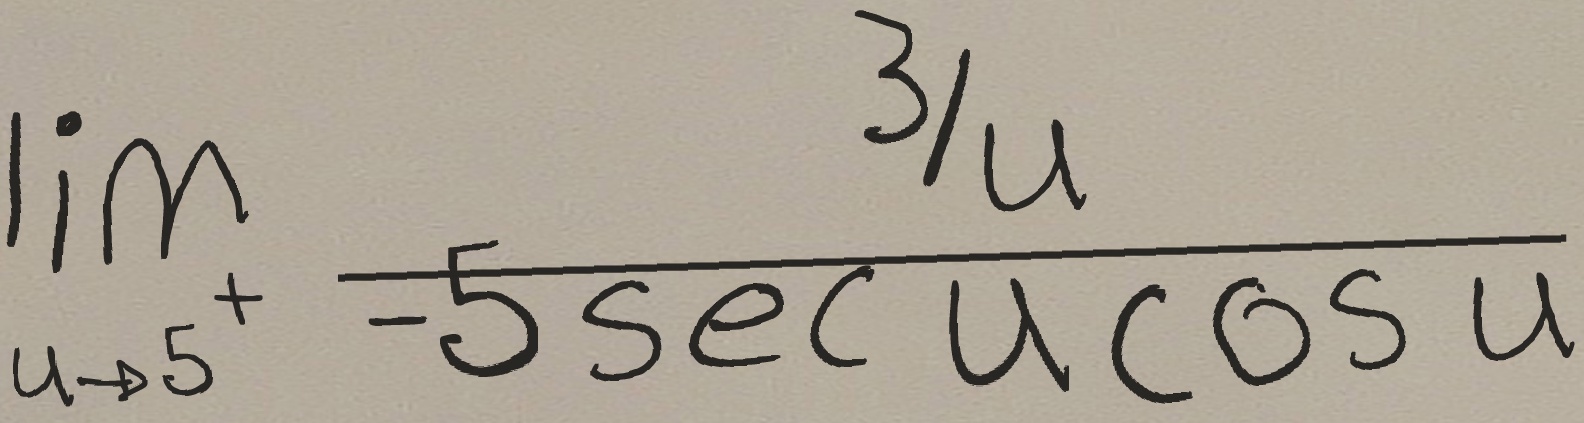 \lim_{u \to 5^+} \frac{3/u}{-5 \sec u \cos u}